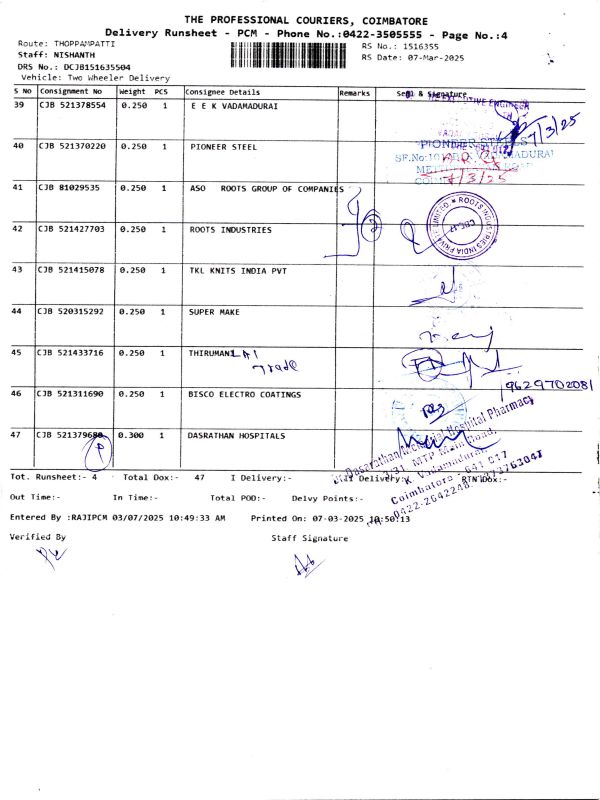 THE PROFESSIONAL COURIERS, COIMBATORE
Delivery Runsheet - PCM - Phone No.:0422-3505555 - Page No.:4
Route: THOPPAMPATTI
RS No.: 1516355
Staff: NISHANTH
RS Date: 07-Mar-2025
DRS No.: DCJB151635504
Vehicle: Two Wheeler Delivery
S No Consignment No Weight PCS Consignee Details Remarks Seal & Signature
39 CJB 521378554 0.250 1 E E K VADAMADURAI
7/3/25
40 CJB 521370220 0.250 1 PIONEER STEEL
PIONEER
7/3/25
41 CJB 81029535 0.250 1 ASO ROOTS GROUP OF COMPANIES
ROOTS INDUSTRIES INDIA PRIVATE LIMITED
42 CJB 521427703 0.250 1 ROOTS INDUSTRIES
43 CJB 521415078 0.250 1 TKL KNITS INDIA PVT
44 CJB 520315292 0.250 1 SUPER MAKE
45 CJB 521433716 0.250 1 THIRUMANLAI
Trade
9629702081
46 CJB 521311690 0.250 1 BISCO ELECTRO COATINGS
47 CJB 521379680 0.300 1 DASRATHAN HOSPITALS
Dasarathan Memorial Hospital Pharmacy
3/31 MTP Main Road,
Vadamadurai,
Coimbatore - 641 017
0422-2642248
Tot. Runsheet:- 4 Total Dox:- 47 I Delivery:- II Delivery: RTN Dox:-
Out Time:- In Time:- Total POD:- Delvy Points:-
Entered By :RAJIPCM 03/07/2025 10:49:33 AM Printed On: 07-03-2025 10:50:13
Verified By Staff Signature